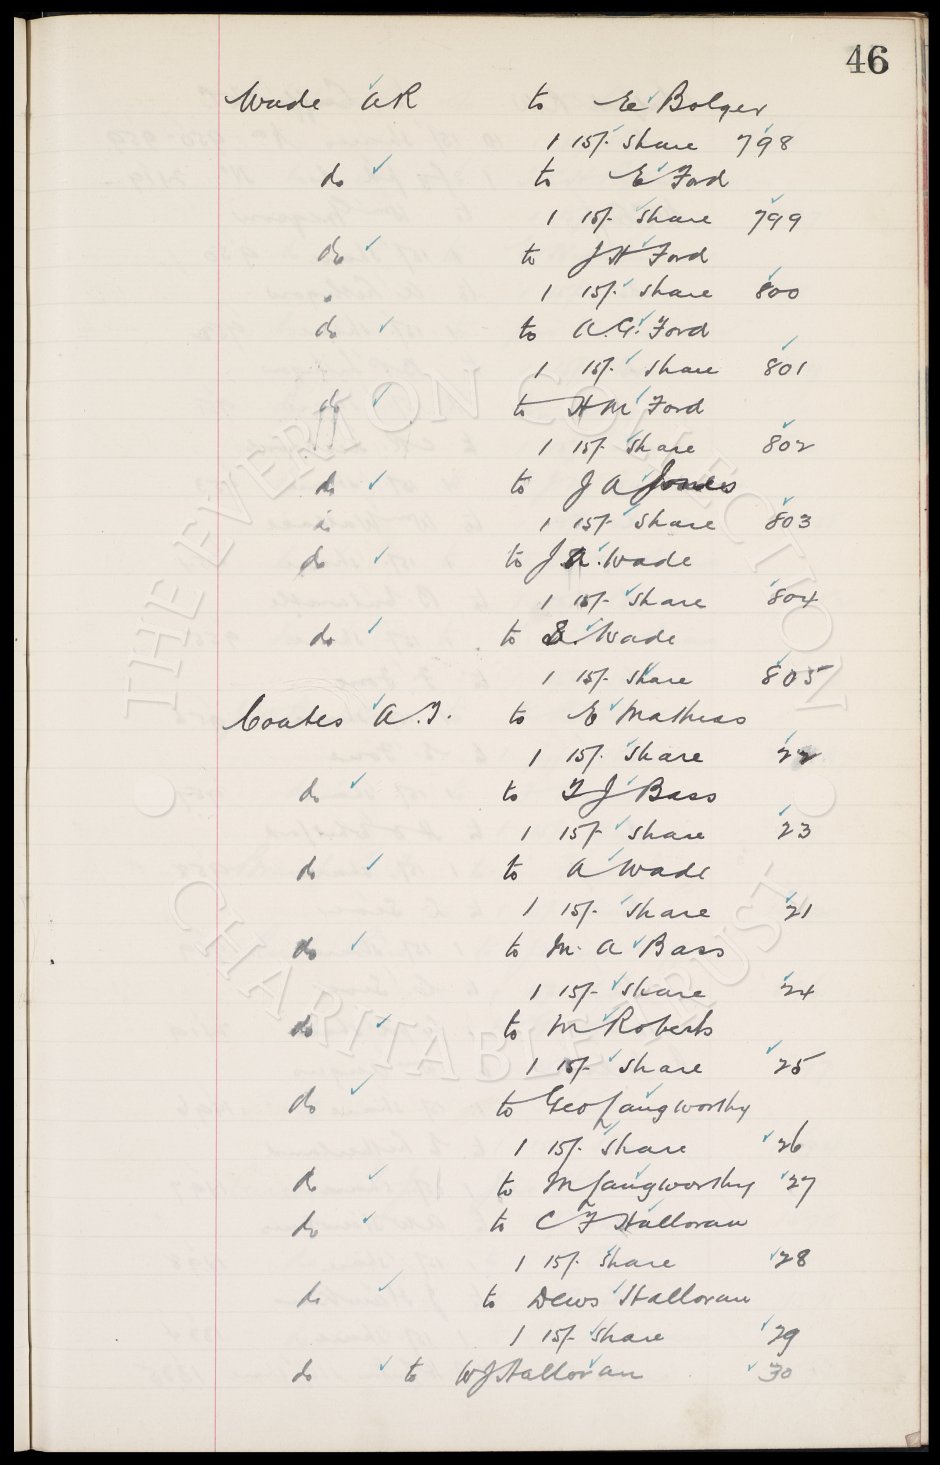 46
Wade A R to E Bolger
1 15/- share 798
do to E Ford
1 15/- share 799
do to J H Ford
1 15/- share 800
do to A. G. Ford
1 15/- share 801
do to H M Ford
1 15/- share 802
do to J A Jones
1 15/- share 803
do to J A. Wade
1 15/- share 804
do to S. Wade
1 15/- share 805
Coates A. T. to E Mathias
1 15/- share 22
do to T J Bass
1 15/- share 23
do to A Wade
1 15/- share 21
do to M. A Bass
1 15/- share 24
do to M Roberts
1 15/- share 25
do to Geo Langworthy
1 15/- share 26
do to M Langworthy 27
do to C F Halloran
1 15/- share 28
do to Dews Halloran
1 15/- share 29
do to W J Halloran 30
THE EVERTON COLLECTION
CHARITABLE TRUST